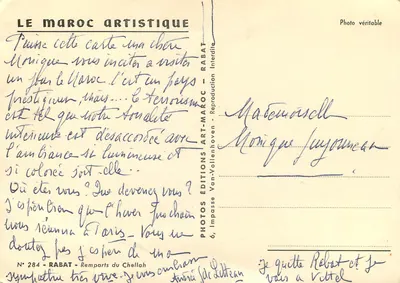 LE MAROC ARTISTIQUE
Photo véritable
Puisse cette carte ma chère
Monique vous inciter à visiter
un jour le Maroc c'est un pays
prestigieux, mais... le terrorisme
est tel que notre tonalité
intérieure est désaccordée avec
l'ambiance si lumineuse et
si colorée soit-elle..
Où êtes vous? Que devenez vous?
J'espère bien que l'hiver prochain
nous réunira à Paris. Vous ne
doutez pas j'espère de ma
sympathie très vive. Je vous embrasse
André de
N° 284 - RABAT - Remparts du Chellah
PHOTOS ÉDITIONS ART-MAROC - RABAT
6, Impasse Van-Vollenhoven - Reproduction Interdite
Mademoiselle
Monique
Je quitte Rabat et je
vais à Vittel